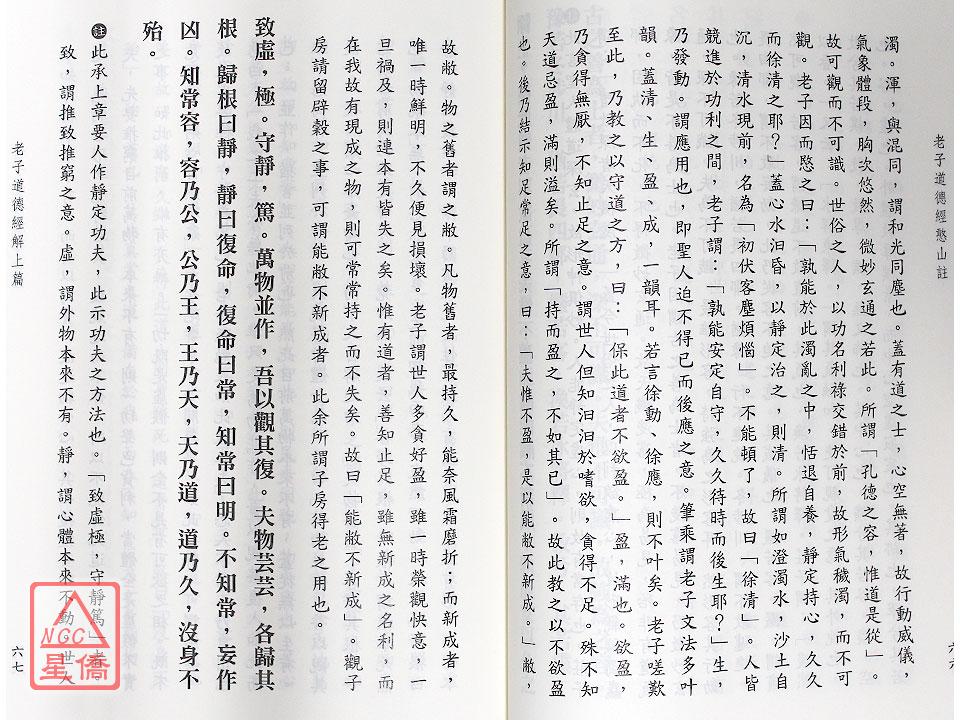 老子道德經憨山註
濁。渾，與混同，謂和光同塵也。蓋有道之士，心空無著，故行動威儀，
氣象體段，胸次悠然，微妙玄通之若此。所謂「孔德之容，惟道是從」。
故可觀而不可識。世俗之人，以功名利祿交錯於前，故形氣穢濁，而不可
觀。老子因而愍之曰：「孰能於此濁亂之中，恬退自養，靜定持心，久久
而徐清之耶？」蓋心水汨昏，以靜定治之，則清。所謂如澄濁水，沙土自
沉，清水現前，名為「初伏客塵煩惱」。不能頓了，故曰「徐清」。人皆
競進於功利之間，老子謂：「孰能安定自守，久久待時而後生耶？」生，
乃發動。謂應用也，即聖人迫不得已而後應之意。筆乘謂老子文法多叶
韻。蓋清、生、盈、成，一韻耳。若言徐動、徐應，則不叶矣。老子嗟歎
至此，乃教之以守道之方，曰：「保此道者不欲盈。」盈，滿也。欲盈，
乃貪得無厭，不知止足之意。謂世人但知汩汩於嗜欲，貪得不足。殊不知
天道忌盈，滿則溢矣。所謂「持而盈之，不如其已」。故此教之以不欲盈
也。後乃結示知足常足之意，曰：「夫惟不盈，是以能敝不新成。」敝，
六六
故敝。物之舊者謂之敝。凡物舊者，最持久，能奈風霜磨折；而新成者，
唯一時鮮明，不久便見損壞。老子謂世人多貪好盈，雖一時榮觀快意，一
旦禍及，則連本有皆失之矣。惟有道者，善知止足，雖無新成之名利，而
在我故有現成之物，則可常常持之而不失矣。故曰「能敝不新成」。觀子
房請留辟穀之事，可謂能敝不新成者。此余所謂子房得老之用也。
致虛，極。守靜，篤。萬物並作，吾以觀其復。夫物芸芸，各歸其
根。歸根曰靜，靜曰復命，復命曰常，知常曰明。不知常，妄作
凶。知常容，容乃公，公乃王，王乃天，天乃道，道乃久，沒身不
殆。
註 此承上章要人作靜定功夫，此示功夫之方法也。「致虛極，守靜篤」者，
致，謂推致推窮之意。虛，謂外物本來不有。靜，謂心體本來不動。世人
老子道德經解上篇
六七
NGC
星僑